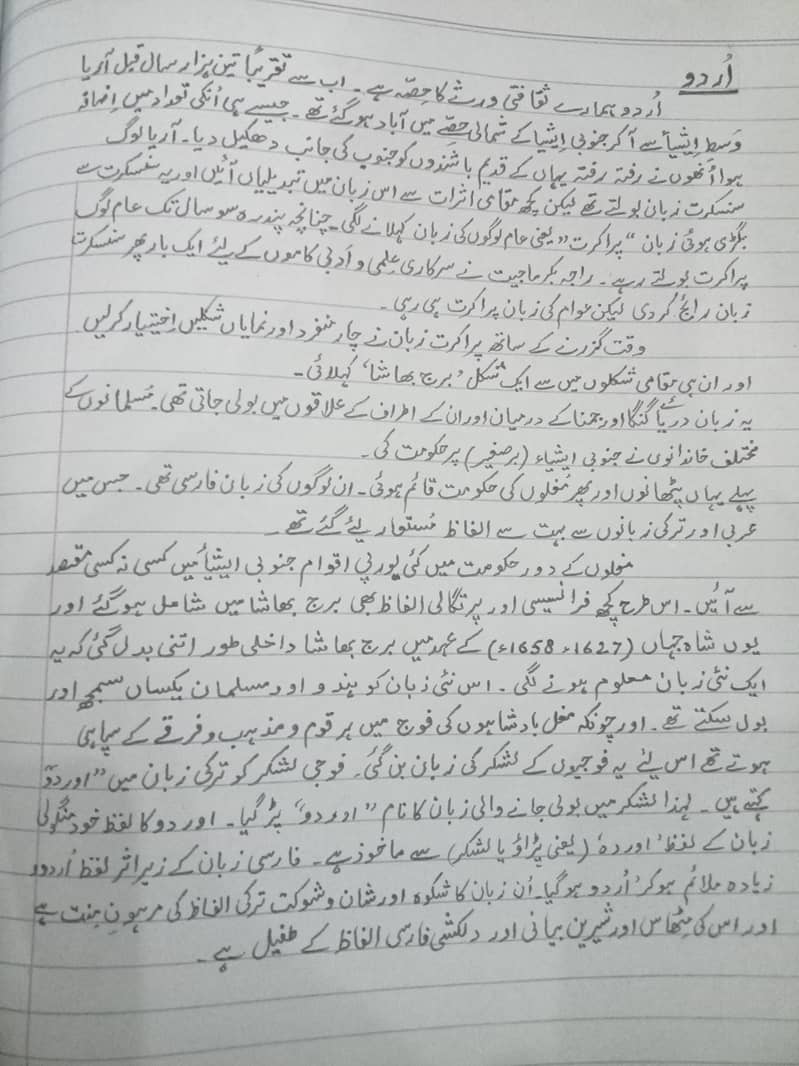 اُردو
اُردو ہمارے ثقافتی ورثے کا حِصّہ ہے۔ اب سے تقریباً تین ہزار سال قبل آریا
وَسطِ ایشیأ سے آ کر جنوبی اِیشیا کے شمالی حِصّے میں آباد ہو گئے تھے۔ جیسے ہی اُنکی تعداد میں اِضافہ
ہوا اُنھوں نے رفتہ رفتہ یہاں کے قدیم باشندوں کو جنوب کی جانب دھکیل دیا۔ آریا لوگ
سنسکرت زبان بولتے تھے لیکن کچھ مقامی اثرات سے اس زبان میں تبدیلیاں آئیں اور یہ سنسکرت سے
بگڑی ہوئی زبان "پراکرت" یعنی عام لوگوں کی زبان کہلانے لگی۔ چنانچہ پندرہ سو سال تک عام لوگ
پراکرت بولتے رہے۔ راجہ بکرماجیت نے سرکاری عِلمی و اَدبی کاموں کے لیٔے ایک بار پھر سنسکرت
زبان رائج کر دی لیکن عوام کی زبان پراکرت ہی رہی۔
وقت گزرنے کے ساتھ پراکرت زبان نے چار منفرد اور نمایاں شکلیں اِختیار کر لیں
اور ان ہی مقامی شکلوں میں سے ایک شکل 'برج بھاشا' کہلائی۔
یہ زبان دریائے گنگا اور جمنا کے درمیان اور ان کے اطراف کے علاقوں میں بولی جاتی تھی۔ مُسلمانوں کے
مختلف خاندانوں نے جنوبی ایشیاء (برصغیر) پر حکومت کی۔
پہلے یہاں پٹھانوں اور پھر مُغلوں کی حکومت قائم ہوئی۔ ان لوگوں کی زبان فارسی تھی۔ جس میں
عربی اور ترکی زبانوں سے بہت سے الفاظ مُستعار لیٔے گئے تھے۔
مغلوں کے دورِ حکومت میں کئی یورپی اقوام جنوبی ایشیأ میں کسی نہ کسی مقصد
سے آئیں۔ اس طرح کچھ فرانسیسی اور پرتگالی الفاظ بھی برج بھاشا میں شامل ہو گئے اور
یوں شاہ جہاں (1627ء 1658ء) کے عہد میں برج بھاشا داخلی طور اتنی بدل گئی کہ یہ
ایک نئی زبان معلوم ہونے لگی۔ اس نئی زبان کو ہندو اور مسلمان یکساں سمجھ اور
بول سکتے تھے۔ اور چونکہ مغل بادشاہوں کی فوج میں ہر قوم و مذہب و فرقے کے سپاہی
ہوتے تھے اس لیٔے یہ فوجیوں کے لشکر کی زبان بن گئی۔ فوجی لشکر کو ترکی زبان میں "اوردو"
کہتے ہیں۔ لہذا لشکر میں بولی جانے والی زبان کا نام "اوردو" پڑ گیا۔ اوردو کا لفظ خود منگولی
زبان کے لفظ 'اوردہ' (یعنی پڑاؤ یا لشکر) سے ماخوذ ہے۔ فارسی زبان کے زیرِ اثر لفظ اُردو
زیادہ ملائم ہو کر 'اُردو' ہو گیا۔ اُن زبان کا شکوہ اور شان و شوکت ترکی الفاظ کی مرہونِ مِنت ہے
اور اس کی مِٹھاس اور شیرین بیانی اور دلکشی فارسی الفاظ کے طفیل ہے۔